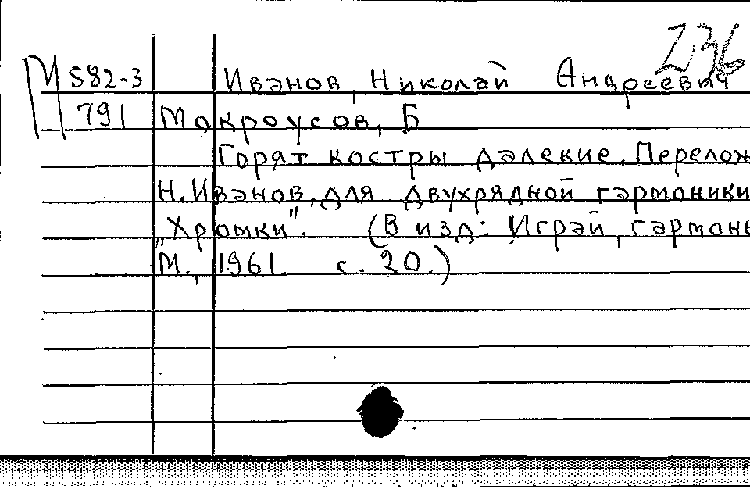 236
М S82-3 Иванов, Николай Андреевич
791 Мокроусов, Б
Горят костры далекие. Перелож
Н. Иванов, для двухрядной гармоники
"Хромки". (В изд: Играй, гармонь
М., 1961 с. 20.)